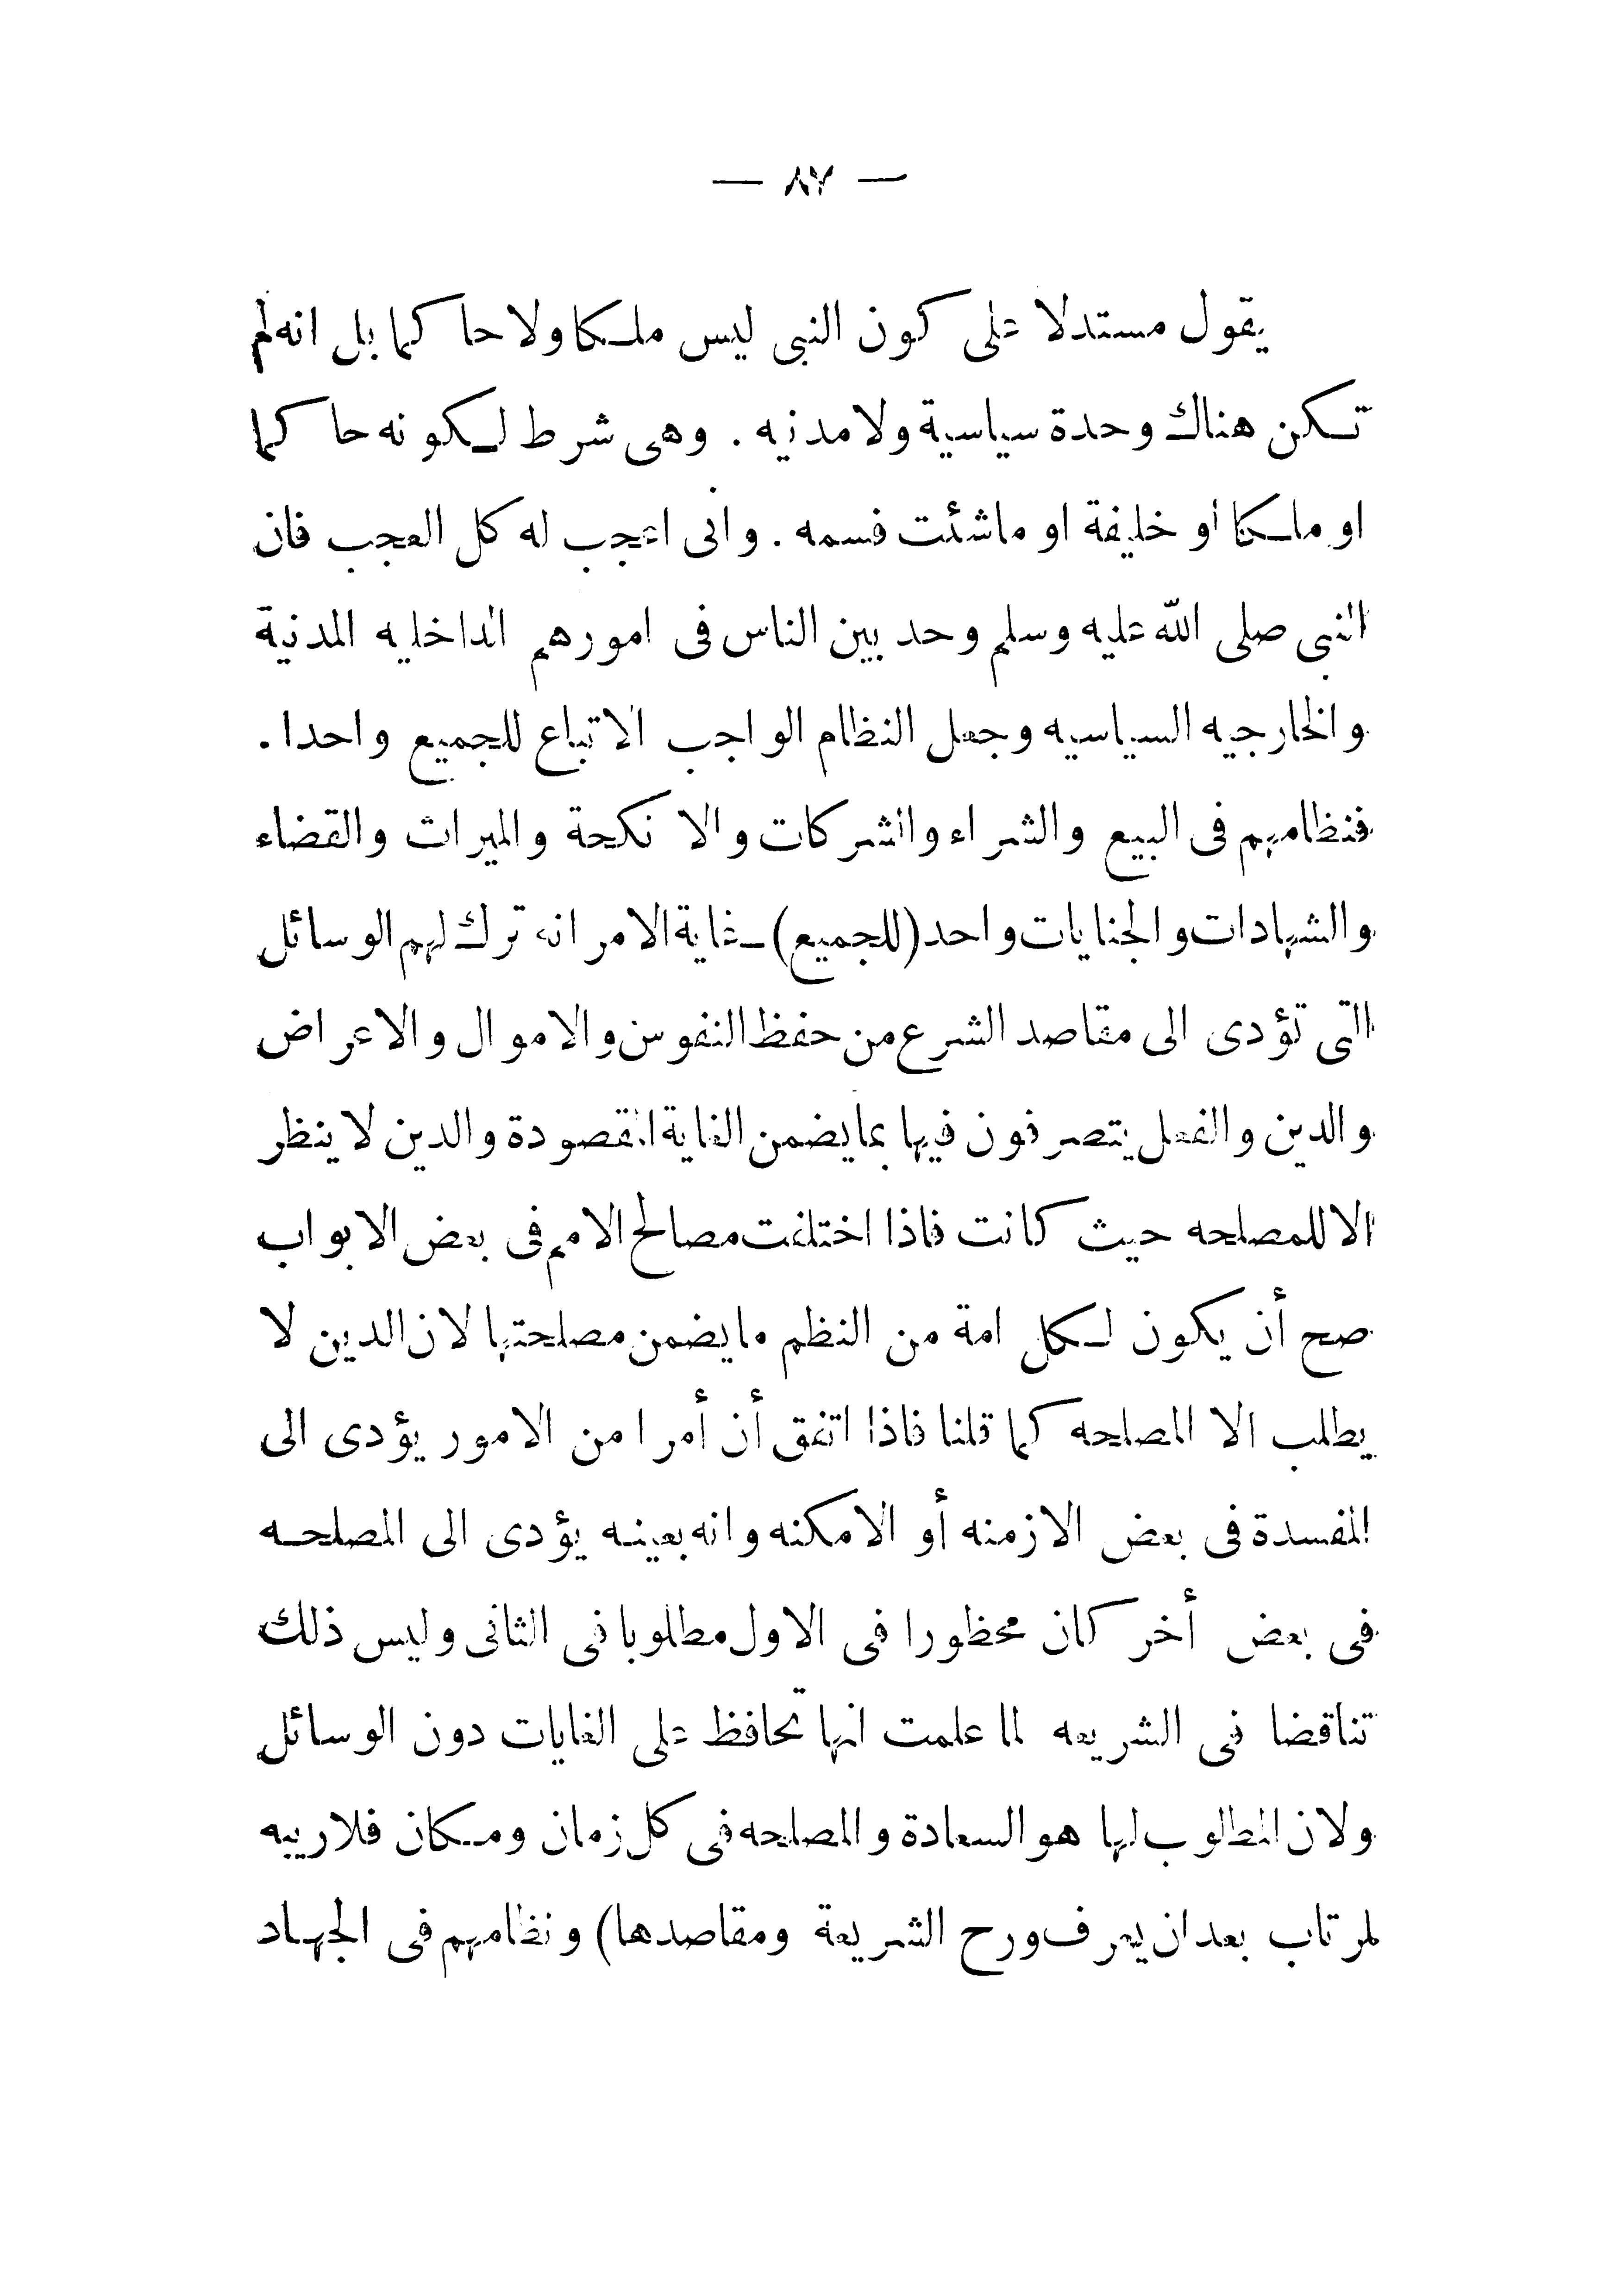 — ٨٧ —
يقول مستدلا على كون النبى ليس ملكا ولا حاكما بل انه لم
تكن هناك وحدة سياسية ولا مدنيه . وهى شرط لكونه حاكما
او ملكا او خليفة او ماشئت فسمه . وانى اعجب له كل العجب فان
النبى صلى الله عليه وسلم وحد بين الناس فى امورهم الداخليه المدنية
والخارجيه السياسيه وجعل النظام الواجب الاتباع للجميع واحدا .
فنظامهم فى البيع والشراء والشركات والانكحة والميراث والقضاء
والشهادات والجنايات واحد (للجميع) ـ غاية الامر انه ترك لهم الوسائل
التى تؤدى الى مقاصد الشرع من حفظ النفوس والاموال والاعراض
والدين والفعل يتصرفون فيها بما يضمن الغاية المقصودة والدين لا ينظر
الا للمصلحه حيث كانت فاذا اختلفت مصالح الامم فى بعض الابواب
صح أن يكون لكل امة من النظم ما يضمن مصلحتها لان الدين لا
يطلب الا المصلحه كما قلنا فاذا اتفق أن أمرا من الامور يؤدى الى
المفسدة فى بعض الازمنه أو الامكنه وانه بعينه يؤدى الى المصلحه
فى بعض أخر كان محظورا فى الاول مطلوبا فى الثانى وليس ذلك
تناقضا فى الشريعه لما علمت انها تحافظ على الغايات دون الوسائل
ولان المطلوب لها هو السعادة والمصلحه فى كل زمان ومكان فلا ريبه
لمرتاب بعد ان يعرف ورح الشريعة ومقاصدها) ونظامهم فى الجهاد